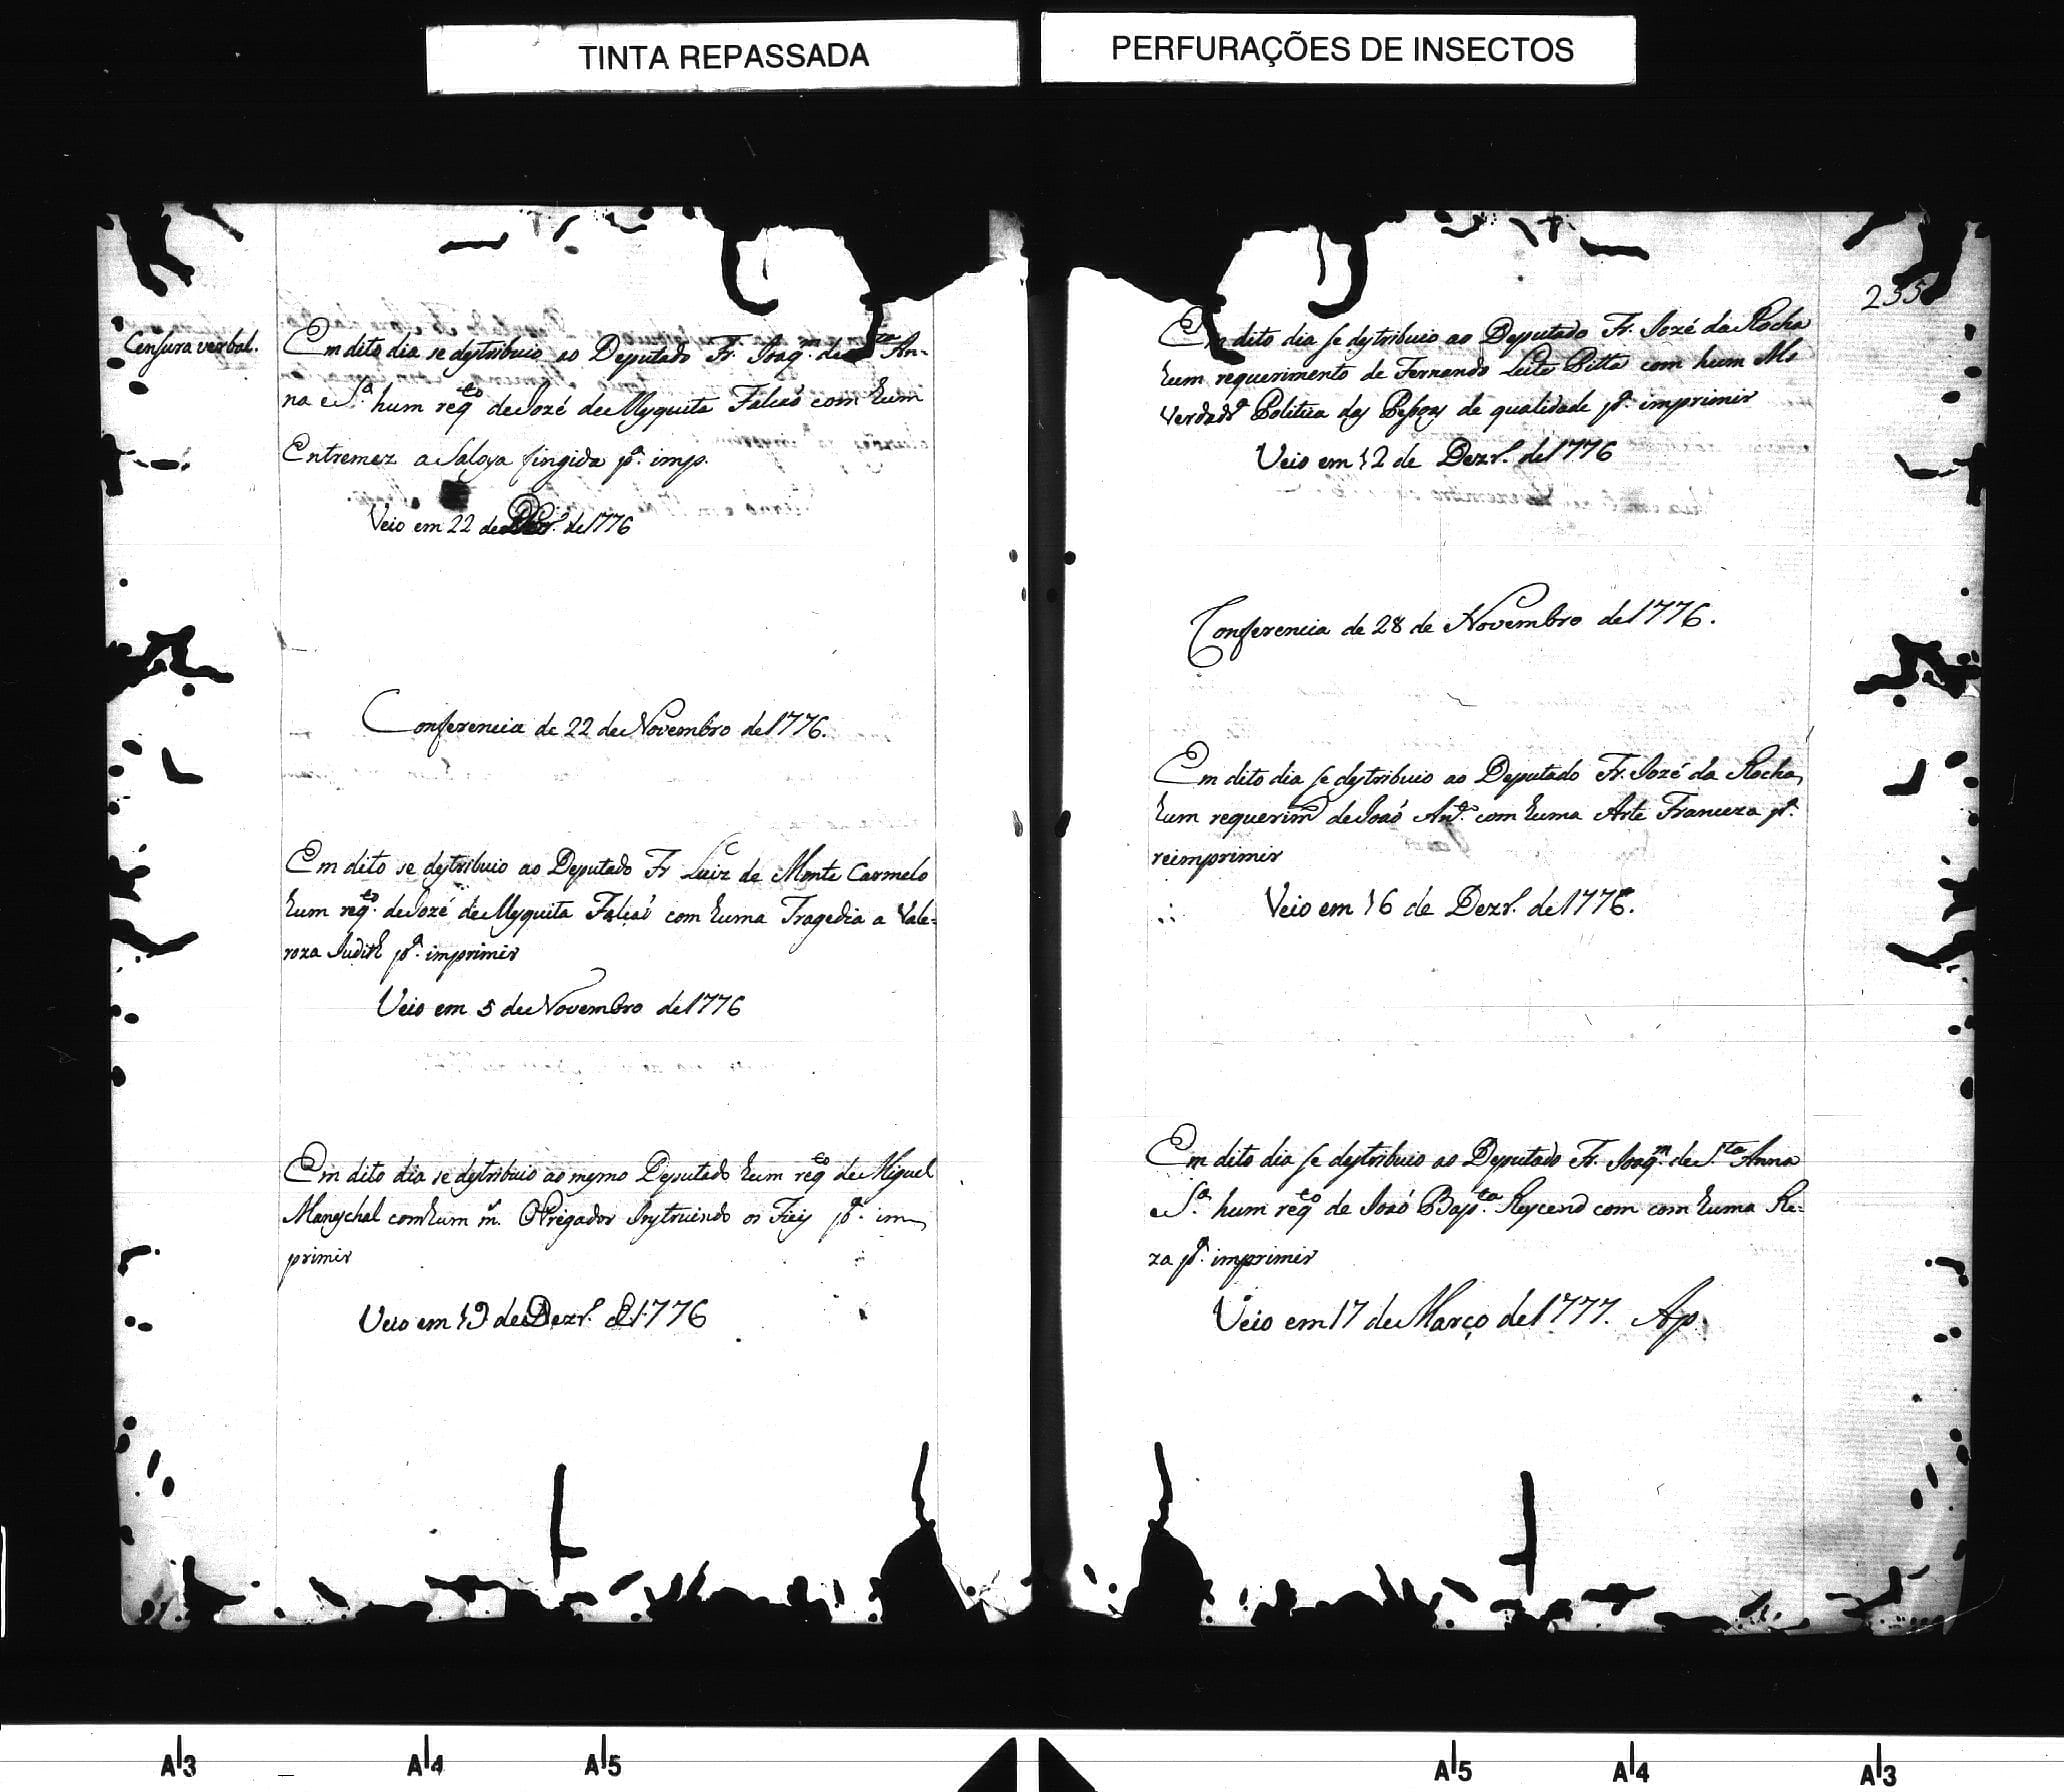 TINTA REPASSADA
PERFURAÇÕES DE INSECTOS
Censura verbal.
Em dito dia se destribuio ao Deputado Fr. Joaq.m de An-
na e S.a hum req.to de Jozé de Mesquita Falcaõ com hum
Entremez a Saloya fingida p.a imp.
Veio em 22 de Dezr.o de 1776
Conferencia de 22 de Novembro de 1776.
Em dito se destribuio ao Deputado Fr Luiz de Monte Carmelo
hum req.to de Jozé de Mesquita Falcaõ com huma Tragedia a Vale-
roza Judith p.a imprimir
Veio em 5 de Novembro de 1776
Em dito dia se destribuio ao mesmo Deputado hum req.to de Miguel
Maneschal com hum m. O Pregador Instruindo os Fieis p.a im
primir
Veio em 19 de Dezr.o de 1776
235
Em dito dia se destribuio ao Deputado Fr. Jozé da Rocha
hum requerimento de Fernando Leite Pitta com hum Ms
Verdadr.a Politica das Pessoas de qualidade p.a imprimir
Veio em 12 de Dezr.o de 1776
Conferencia de 28 de Novembro de 1776.
Em dito dia se destribuio ao Deputado Fr. Jozé da Rocha
hum requerim.to de Joaõ Ant.o com huma Arte Franceza p.a
reimprimir
Veio em 16 de Dezr.o de 1776.
Em dito dia se destribuio ao Deputado Fr. Joaq.m de S.ta Anna
e S.a hum req.to de Joaõ Bap.ta Reycend com com huma Re-
za p.a imprimir
Veio em 17 de Março de 1777. Ap.
A3
A4
A5
A5
A4
A3